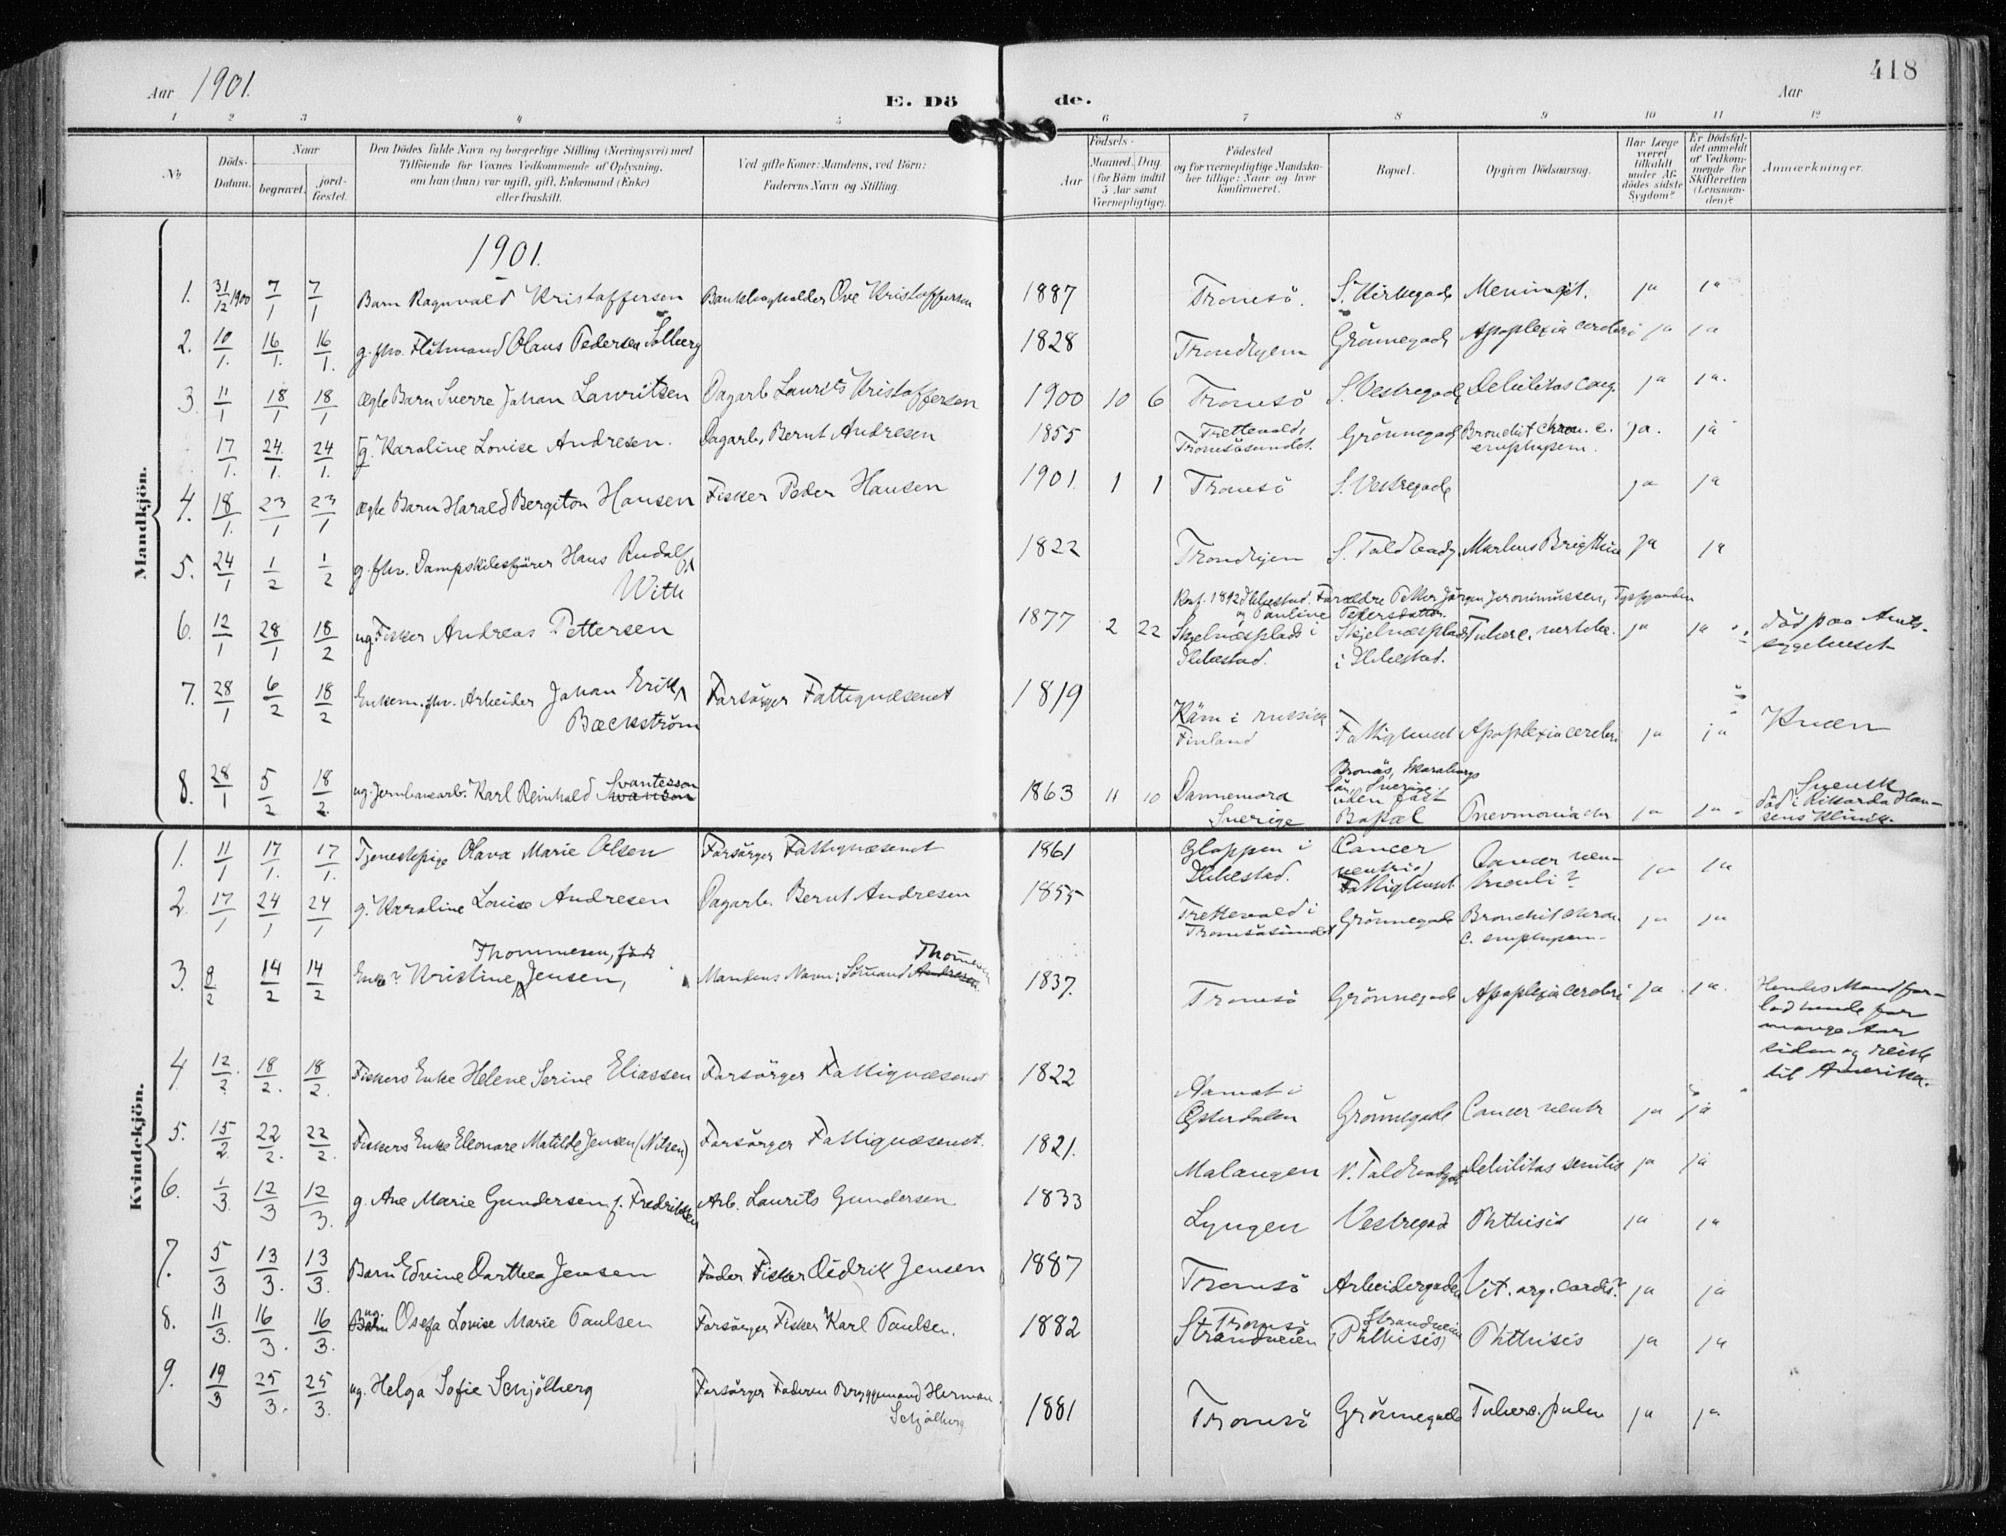 Aar 1901. E. Dö de. Aar 418
1 2 3 4 5 6 7 8 9 10 11 12
No
Döds-Datum.
Naar
begravet.
jord-fæstet.
Den Dödes fulde Navn og borgerlige Stilling (Næringsvei) med
Tilföiende for Voxnes Vedkommende af Oplysning,
om han (hun) var ugift, gift, Enkemand (Enke)
eller fraskilt.
Ved gifte Koner: Mandens, ved Börn:
Faderens Navn og Stilling.
Födsels-
Aar
Maaned. Dag.
(for Börn indtil
5 Aar samt
Værnepligtige).
Födested
og for værnepligtige Mandska-
ber tillige: Naar og hvor
konfirmeret.
Bopæl.
Opgiven Dödsaarsag.
Har Læge
været
tilkaldt
under Af-
dödes sidste
Sygdom?
Er Dödsfal-
det anmeldt
af Vedkom-
mende for
Skifteretten
(Lensman-
den)?
Anmærkninger.
1901.
Mandkjön.
1. 31/12 1900 7/1 7/1 Barn Ragnvald Kristoffersen Bankbogholder Ove Kristoffersen 1887 Tromsö. S. Kirkegade Meningit. ja ja
2. 10/1. 16/1. 16/1. g. fhv. Flötmand Olaus Pedersen Solberg 1828 Trondhjem Grönnegade Apoplexia cerebri ja ja
3. 11/1 18/1 18/1 ægte Barn Sverre Johan Lauritsen Dagarb. Laurits Kristoffersen 1900 10 6 Tromsö S. Vestregade Debilitas cong. ja ja.
17/1. 24/1. 24/1. g. Karoline Lovise Andresen. Dagarb. Bernt Andresen 1855 Trettevold, Tromsösundet. Grönnegade Bronchit chron. c. emphysem. ja. ja
4. 18/1. 23/1 23/1 ægte Barn Harald Bergiton Hansen Fisker Peder Hansen 1901. 1 1 Tromsö S. Vestregade ja ja
5. 24/1 1/2 1/2 g. fhv. Dampskibsförer Hans Rudolf
With 1822 Trondhjem S. Toldbodg. Morbus Brigthii ja ja
Konf. 1892 Ibbestad. Forældre Petter Jörgen Jeronimussen,
og Pauline Pedersdatter.
6. 12/1 28/1 18/2 ug. Fisker Andreas Pettersen 1877 2 22 Skjelnæsplads i Ibbestad. Skjelnæsplads i Ibbestad. Tuberc. vertebr. ja ja död paa Amts-
sygehuset
7. 28/1 6/2 18/2 Enkem. fhv. Arbeider Johan Erik
Bæckström Forsörger Fattigvæsenet 1819 Käm i russisk Finland Fattighuset Apoplexia cerebri ja ja Kvæn
8. 28/1 5/2 18/2. ug. Jernbanearb. Karl Reinhold Svantesson
Svanson 1863 11 10 Dannemora Sverige Bronäs, Skaraborgs län Sverige uden fast Bopæl Pnevmonia ja ja Svensk
död i Rikarda Han-
sens Klinik.
Kvindekjön.
1. 11/1 17/1. 17/1. Tjenestepige Olava Marie Olsen Forsörger Fattigvæsenet 1861 Gloppen i Ibbestad. Cancer ventric Fattighuset Cancer ven-
triculi? ja ja
2 17/1 24/1 24/1 g. Karoline Lovise Andresen Dagarb. Bernt Andresen 1855 Trettevold i Tromsösundet Grönnegade Bronchit chron c. emphysem ja ja
3. 8/2 14/2 14/2 Thommesen, född
Enke? Kristine Jensen, Mandens Navn: Sömand Andresen Thommesen 1837. Tromsö Grönnegade Apoplexia cerebri ja ja. Hendes Mand for-
lod hende for
mange Aar
siden og reiste
til Amerika.
4 12/2. 18/2. 18/2. Fiskers Enke Helene Serine Eliassen Forsörger Fattigvæsenet 1822 Aamot i Østerdalen Grönnegade Cancer ventr ja ja
5. 15/2. 22/2. 22/2. Fiskers Enke Eleonore Matilde Jensen (Nilsen) Forsörger Fattigvæsenet. 1821. Malangen N. Toldbodgade Debilitas senilis ja ja
6. 1/3. 12/3 12/3. g. Ane Marie Gundersen, f. Fredriksen Arb. Laurits Gundersen 1833 Lyngen Vestregad Phthisis ja ja
7. 5/3 13/3. 13/3. Barn Edvine Dorthea Jensen Fader Fisker Didrik Jensen 1887 Tromsö Arbeidergaden Vit. org. cordis? ja ja
8. 11/3. 16/3. 16/3. Barn ug. Osefa Lovise Marie Paulsen Forsörger Fisker Karl Paulsen. 1882 Tromsö Strandveien Strandveien (Phthisis) Phthisis ja ja
9. 19/3 25/3. 25/3. ug. Helga Sofie Schjölberg Forsörger Faderen Bryggemand Herman
Schjölberg 1881 Tromsö Grönnegade Tuberc. pulm ja ja